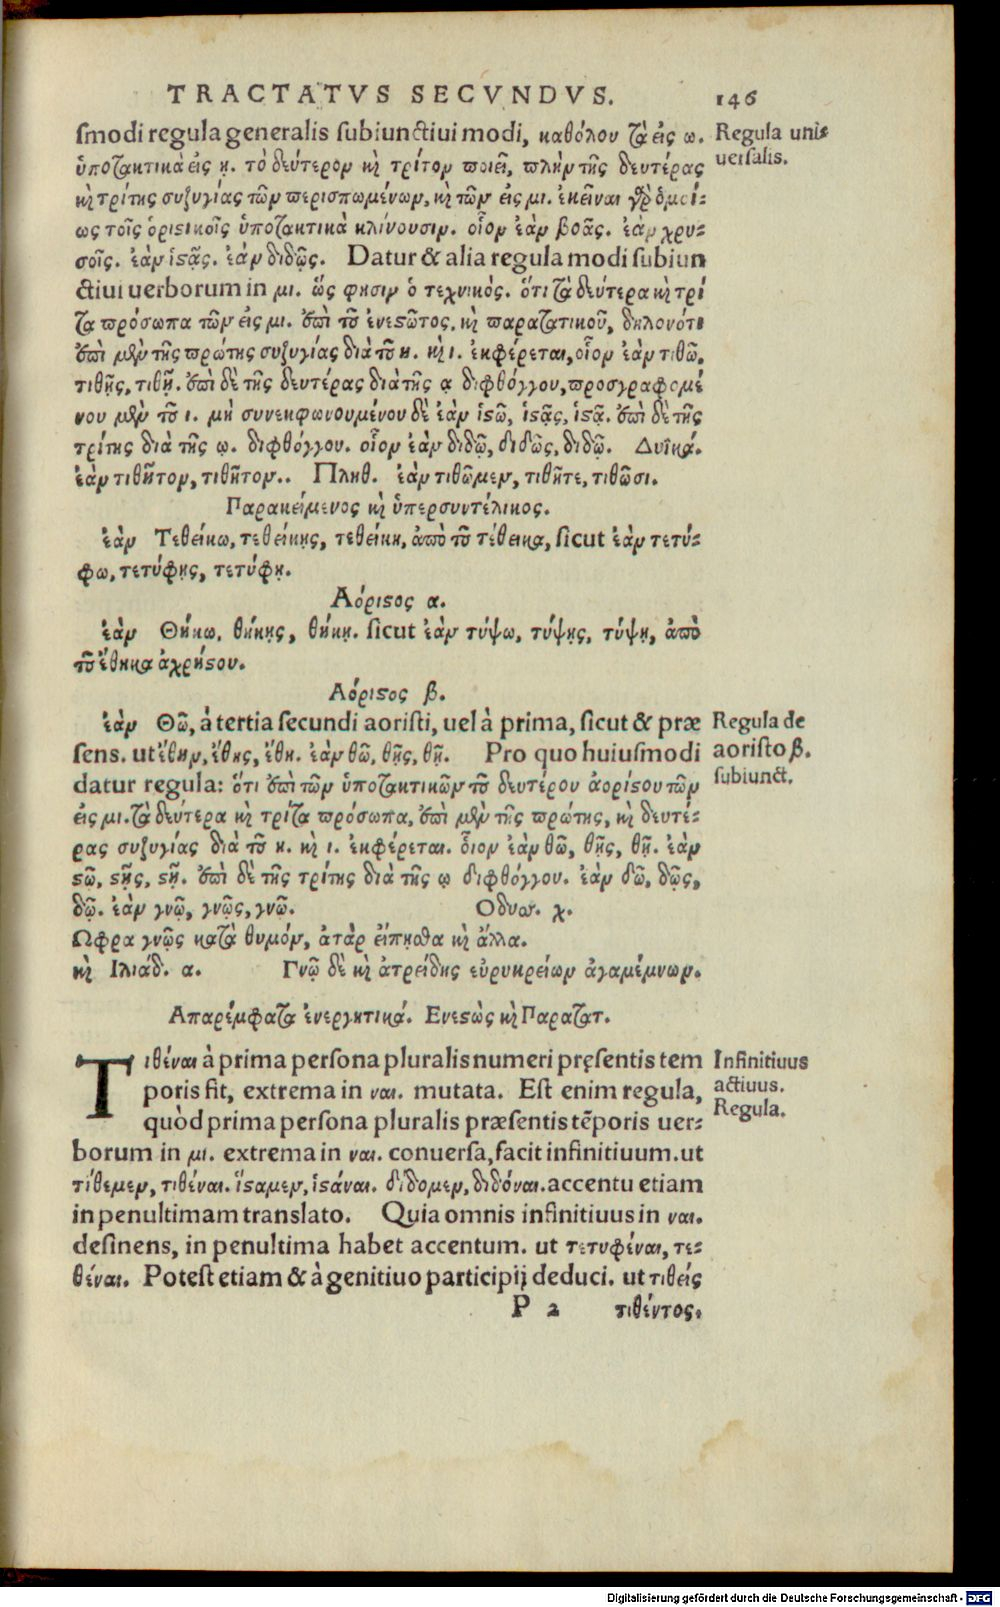 TRACTATVS SECVNDVS. 146
smodi regula generalis subiunctiui modi, καθόλου τὰ εἰς ω.
ὑποτακτικὰ εἰς ῃ. τὸ δεύτερον καὶ τρίτον ποιεῖ, πλὴν τῆς δευτέρας
καὶ τρίτης συζυγίας τῶν περισπωμένων, καὶ τῶν εἰς μι. ἐκεῖναι γὰρ ὁμοί-
ως τοῖς ὁριστικοῖς ὑποτακτικὰ κλίνουσιν. οἷον ἐὰν βοᾷς. ἐὰν χρυ-
σοῖς. ἐὰν ἱστᾷς. ἐὰν διδῷς. Datur & alia regula modi subiun
ctiui uerborum in μι. ὥς φησιν ὁ τεχνικός. ὅτι τὰ δεύτερα καὶ τρί
τα πρόσωπα τῶν εἰς μι. ἐπὶ τοῦ ἐνεστῶτος, καὶ παρατατικοῦ, δηλονότι
ἐπὶ μὲν τῆς πρώτης συζυγίας διὰ τοῦ η. καὶ ι. ἐκφέρεται, οἷον ἐὰν τιθῶ,
τιθῇς, τιθῇ. ἐπὶ δὲ τῆς δευτέρας διὰ τῆς ᾳ διφθόγγου, προσγραφομέ
νου μὲν τοῦ ι. μὴ συνεκφωνουμένου δὲ ἐὰν ἱστῶ, ἱστᾷς, ἱστᾷ. ἐπὶ δὲ τῆς
τρίτης διὰ τῆς ῳ. διφθόγγου. οἷον ἐὰν διδῶ, διδῷς, διδῷ. Δυϊκά.
ἐὰν τιθῆτον, τιθῆτον.. Πληθ. ἐὰν τιθῶμεν, τιθῆτε, τιθῶσι.
Παρακείμενος καὶ ὑπερσυντέλικος.
ἐὰν Τεθείκω, τεθείκῃς, τεθείκῃ, ἀπὸ τοῦ τέθεικα, sicut ἐὰν τετύ-
φω, τετύφῃς, τετύφῃ.
Αόριστος α.
ἐὰν Θήκω, θήκῃς, θήκῃ. sicut ἐὰν τύψω, τύψῃς, τύψῃ, ἀπὸ
τοῦ ἔθηκα ἀχρήστου.
Αόριστος β.
ἐὰν Θῶ, à tertia secundi aoristi, uel à prima, sicut & præ
sens. ut ἔθην, ἔθης, ἔθη. ἐὰν θῶ, θῇς, θῇ. Pro quo huiusmodi
datur regula: ὅτι ἐπὶ τῶν ὑποτακτικῶν τοῦ δευτέρου ἀορίστου τῶν
εἰς μι. τὰ δεύτερα καὶ τρίτα πρόσωπα, ἐπὶ μὲν τῆς πρώτης, καὶ δευτέ-
ρας συζυγίας διὰ τοῦ η. καὶ ι. ἐκφέρεται. οἷον ἐὰν θῶ, θῇς, θῇ. ἐὰν
στῶ, στῇς, στῇ. ἐπὶ δὲ τῆς τρίτης διὰ τῆς ῳ διφθόγγου. ἐὰν δῶ, δῷς,
δῷ. ἐὰν γνῶ, γνῷς, γνῶ. Οδυσ. χ.
Ωφρα γνῷς κατὰ θυμόν, ἀτὰρ εἴπῃσθα καὶ ἄλλα.
καὶ Ιλιάδ. α. Γνῷ δὲ καὶ ἀτρείδης εὐρυκρείων ἀγαμέμνων.
Απαρέμφατα ἐνεργητικά. Ενεστὼς καὶ Παρατατ.
Τιθέναι à prima persona pluralis numeri pręsentis tem
poris fit, extrema in ναι. mutata. Est enim regula,
quòd prima persona pluralis præsentis tẽporis uer-
borum in μι. extrema in ναι. conuersa, facit infinitiuum. ut
τίθεμεν, τιθέναι. ἵσταμεν, ἱστάναι. δίδομεν, διδόναι. accentu etiam
in penultimam translato. Quia omnis infinitiuus in ναι.
desinens, in penultima habet accentum. ut τετυφέναι, τε-
θέναι. Potest etiam & à genitiuo participij deduci. ut τιθείς
P 2 τιθέντος.
Regula uni-
uersalis.
Regula de
aoristo β.
subiunct.
Infinitiuus
actiuus.
Regula.
Digitalisierung gefördert durch die Deutsche Forschungsgemeinschaft - DFG